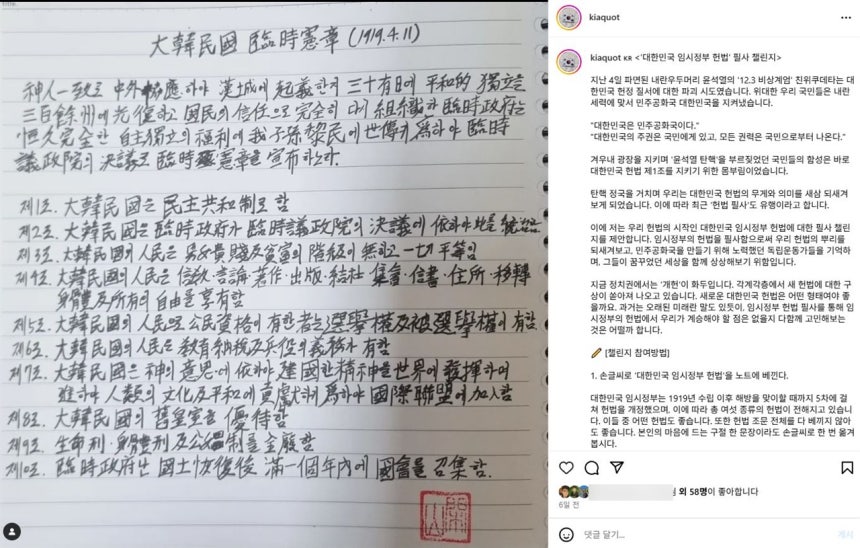 大韓民國 臨時憲章 (1919.4.11)
神人一致로 中外協應하야 漢城에 起義한지 三十有日에 平和的 獨立을
三百餘州에 光復하고 國民의 信任으로 完全히 다시 組織한 臨時政府는
恒久完全한 自主獨立의 福利에 我子孫黎民에 世傳키 爲하야 臨時
議政院의 決議로 臨時憲章을 宣布하노라.
제1조. 大韓民國은 民主共和制로 함
제2조. 大韓民國은 臨時政府가 臨時議政院의 決議에 依하야 此를 統治함
제3조. 大韓民國의 人民은 男女貴賤及貧富의 階級이 無하고 一切 平等임
제4조. 大韓民國의 人民은 信敎·言論·著作·出版·結社·集會·信書·住所·移轉
身體及所有의 自由를 享有함
제5조. 大韓民國의 人民으로 公民資格이 有한者는 選擧權及被選擧權이 有함
제6조. 大韓民國의 人民은 敎育納稅及兵役의 義務가 有함
제7조. 大韓民國은 神의 意思에 依하야 建國한 精神을 世界에 發揮하며
進하야 人類의 文化及平和에 貢獻하기 爲하야 國際聯盟에 加入함
제8조. 大韓民國의 舊皇室을 優待함
제9조. 生命刑·身體刑及公娼制를 全廢함
제10조. 臨時政府난 國土恢復後 滿一個年內에 國會를 召集함.
kiaquot
kiaquot KR <'대한민국 임시정부 헌법' 필사 챌린지>
지난 4일 파면된 내란우두머리 윤석열의 '12.3 비상계엄' 친위쿠데타는 대한
민국 헌정 질서에 대한 파괴 시도였습니다. 위대한 우리 국민들은 내란
세력에 맞서 민주공화국 대한민국을 지켜냈습니다.
"대한민국은 민주공화국이다."
"대한민국의 주권은 국민에게 있고, 모든 권력은 국민으로부터 나온다."
겨우내 광장을 지키며 '윤석열 탄핵'을 부르짖었던 국민들의 함성은 바로
대한민국 헌법 제1조를 지키기 위한 몸부림이었습니다.
탄핵 정국을 거치며 우리는 대한민국 헌법의 무게와 의미를 새삼 되새겨
보게 되었습니다. 이에 따라 최근 '헌법 필사'도 유행이라고 합니다.
이에 저는 우리 헌법의 시작인 대한민국 임시정부 헌법에 대한 필사 챌린
지를 제안합니다. 임시정부의 헌법을 필사함으로써 우리 헌법의 뿌리를
되새겨보고, 민주공화국을 만들기 위해 노력했던 독립운동가들을 기억하
며, 그들이 꿈꾸었던 세상을 함께 상상해보기 위함입니다.
지금 정치권에서는 '개헌'이 화두입니다. 각계각층에서 새 헌법에 대한 구
상이 쏟아져 나오고 있습니다. 새로운 대한민국 헌법은 어떤 형태여야 좋
을까요. 과거는 오래된 미래란 말도 있듯이, 임시정부 헌법 필사를 통해 임
시정부의 헌법에서 우리가 계승해야 할 점은 없을지 다함께 고민해보는
것은 어떨까 합니다.
[챌린지 참여방법]
1. 손글씨로 '대한민국 임시정부 헌법'을 노트에 베낀다.
대한민국 임시정부는 1919년 수립 이후 해방을 맞이할 때까지 5차에 걸
쳐 헌법을 개정했으며, 이에 따라 총 여섯 종류의 헌법이 전해지고 있습니
다. 이들 중 어떤 헌법도 좋습니다. 또한 헌법 조문 전체를 다 베끼지 않아
도 좋습니다. 본인의 마음에 드는 구절 한 문장이라도 손글씨로 한 번 옮겨
봅시다.
외 58명이 좋아합니다
6일 전
댓글 달기...
게시